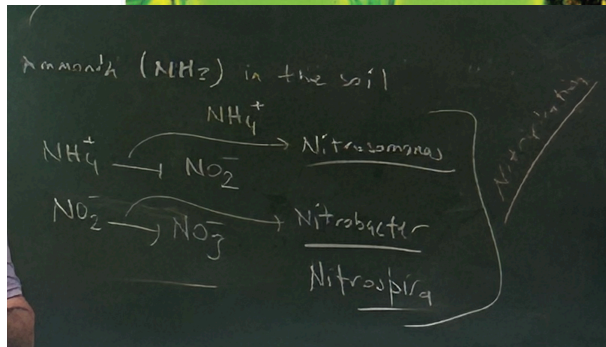 Ammonia (NH3) in the soil
NH4+
NH4+ → NO2- → Nitrosomonas
NO2- → NO3- → Nitrobacter
Nitrospira
Nitrification